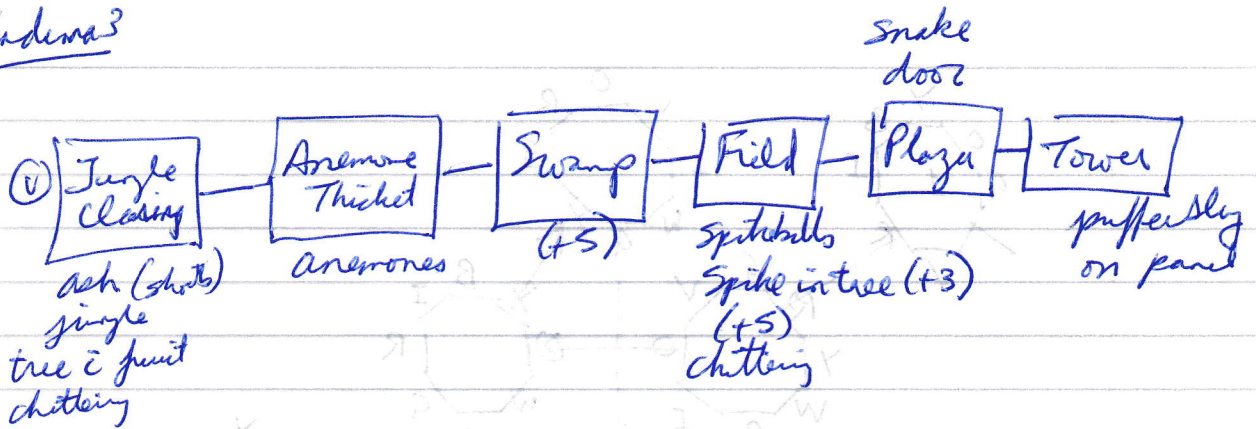 ndima3
Snake
door
V
Jungle
Clearing
Anemone
Thicket
Swamp
Field
Plaza
Tower
ash (shirts)
jungle
tree c̄ fruit
chittering
anemones
(+5)
Spikeballs
Spike in tree (+3)
(+5)
chittering
puffer slug
on panel